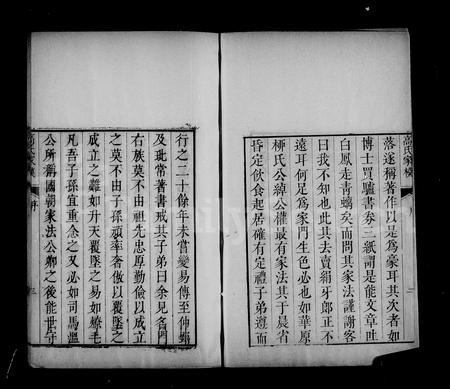 高氏家模
落遂稱著作以是為豪耳其次者如
博士買驢書券三紙謂是能文章吐
白鳳走青螭矣而問其家法謹謝客
曰我不知也此其去賣絹牙郎正不
遠耳何足為家門生色必也如華原
柳氏公綽公權最有家法其于晨省
昏定飲食起居確有定禮子弟遵而
行之二十餘年未嘗變易傳至仲郢
及玭常著書戒其子弟曰余見名門
右族莫不由祖先忠厚勤儉以成立
之莫不由子孫頑率奢傲以覆墜之
成立之難如升天覆墜之易如燎毛
凡吾子孫宜重念之又必如司馬溫
公所稱國朝家法公卿之後能世守